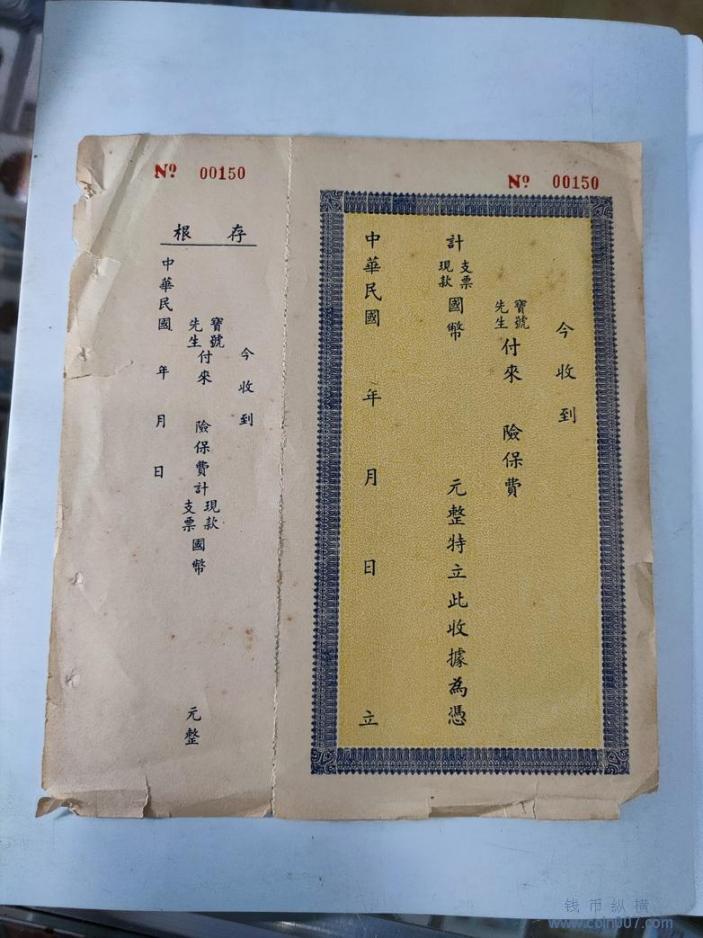 № 00150
今收到
寶號
先生 付來 險保費
計 支票
現款 國幣 元整特立此收據為憑
中華民國 年 月 日 立
№ 00150
存根
今收到
寶號
先生 付來 險保費計 現款
支票 國幣 元整
中華民國 年 月 日
钱币纵横
www.coin007.com